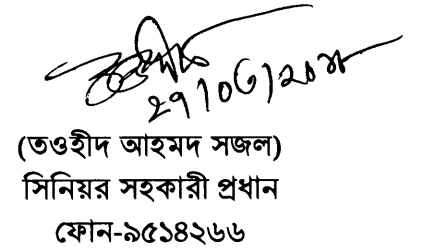 ২৭/০৩/২০১৮
(তওহীদ আহমদ সজল)
সিনিয়র সহকারী প্রধান
ফোন-৯৫১৪২৬৬